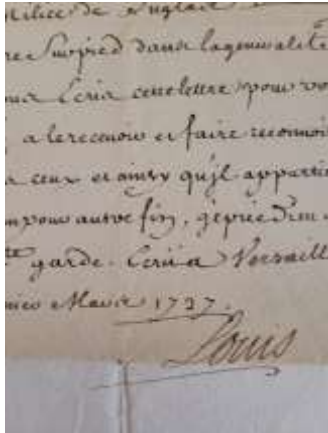 Milice de
re sur pied dans la generalité
Ecris cette lettre pour vo
a le recevoir et faire reconnoi
ceux et ainsy qu'il apparti
pour autre fin, je prie Dieu
te garde. Ecrit a Versaill
Mars 1727.
Louis